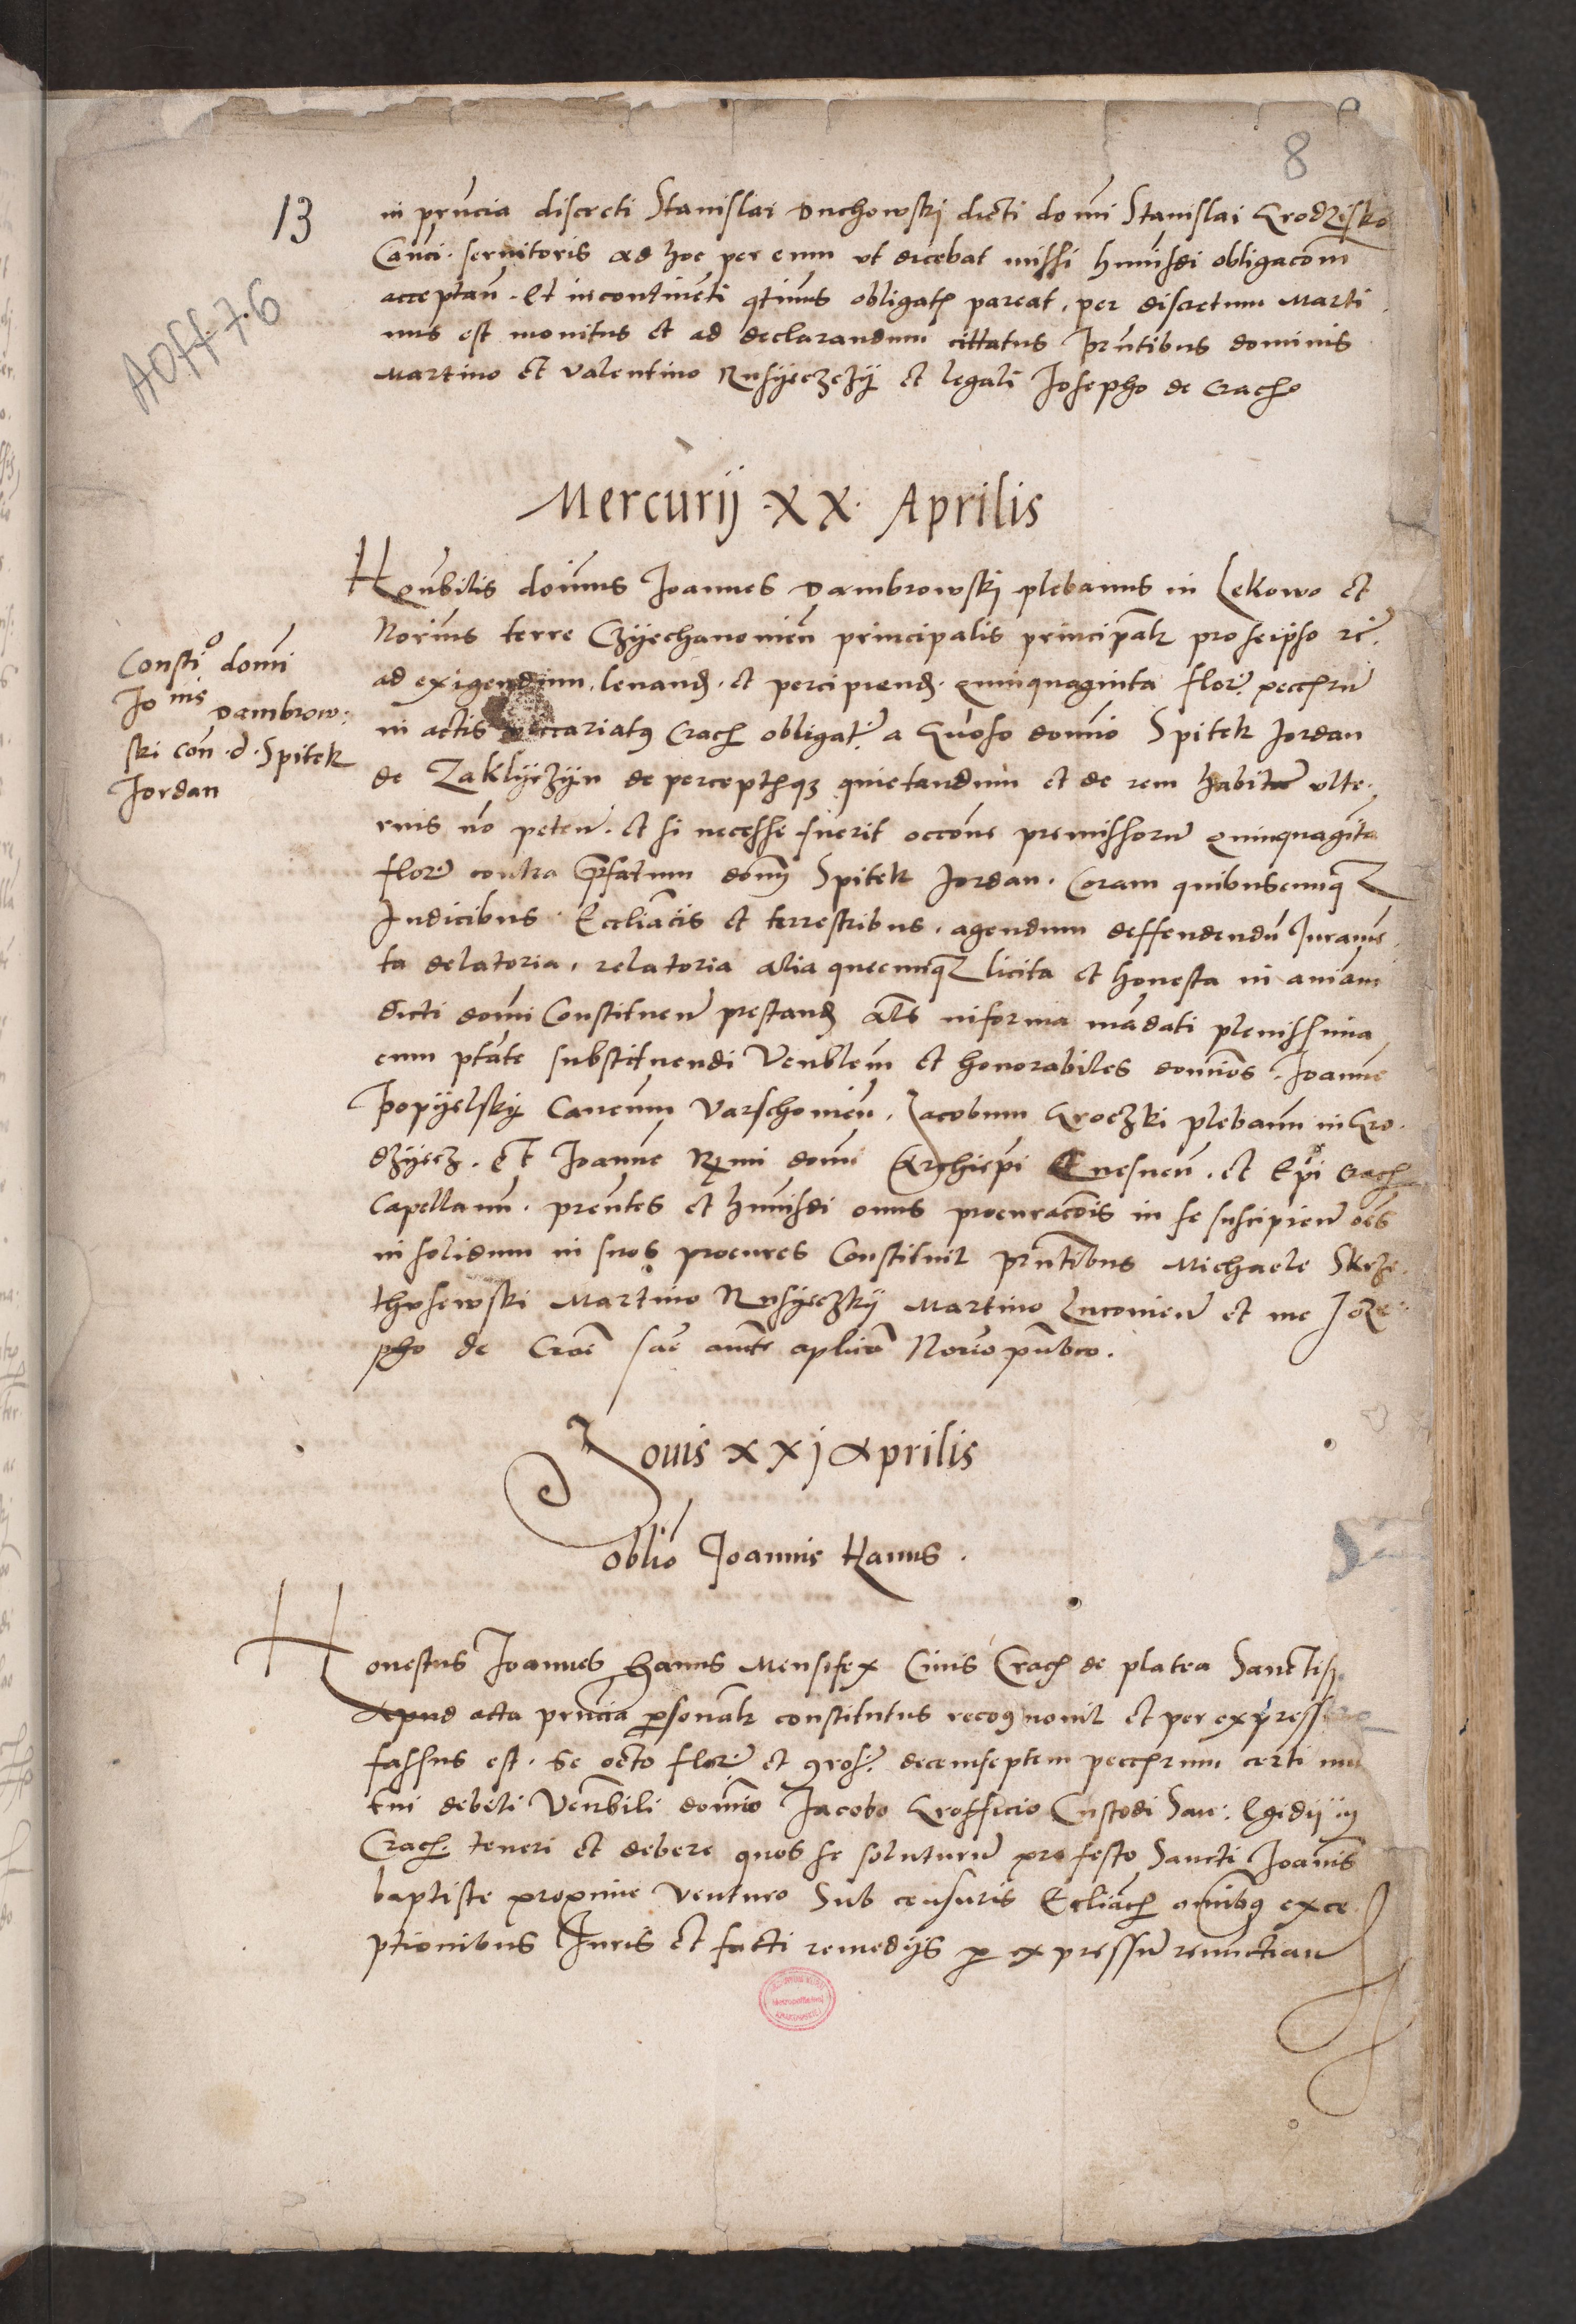 8
13
AOff. 76
in prncia discreti Stanislai Duchowski dicti domi Stanislai Grodzisko
Canci. servitoris ad hoc per eum ut dicebat missi hmoi obligacom
acceptan. Et incontinenti qtinus obligat pareat, per discretum Marti
nus est monitus et ad declarandum cittatus Prntibus dominis
Martino et Valentino et legali Josepho de Crach
Mercurij .XX. Aprilis
Honbilis domus Joannes Dambrowskj plebanus in Lekowo et
Norius terre Czyechanonien principalis principalr pro seipso
ad exigendum, levand. et percipiend. quinquaginta flor. pecc
in actis viccariatus Crach obligat. a Gnoso domno Spitek Jordan
de Zaklyczyn de perceptisque quietandum et de rem habita ulte
rius no peten. et si necesse fuerit occone premissoru quinquaginta
flor contra prefatum domn Spitek Jordan. Coram quibuscunq
Judicibus Eccliacis et terrestribus, agendum deffendendu Juramen
ta delatoria, relatoria alia quecunq licita et honesta in aniam
dicti domi Constituen prestand als in forma mandati plenissima
cum ptate substituendi Venblem et honorabiles dominos. Joanne
Popyelsky Canonum Varschovien. Jacobum Groczki plebanu in Gro
dzyecz. et Joanne Rmi domi Archiepi Gnesnen. et Epi Crach
Capellanu. prentes et hmoi onus procuraconis in se suscipien oes
in solidum in suos procures Constituit Prntibus Michaele Skrze
thusewski Martino Martino Luconien et me Joze
pho de Crac sac aucte aplica Norio publico.
Consti° domi
Jo nis Dambrow:
ski con. d. Spitek
Jordan
Jovis XXj Aprilis
Oblio Joannis Hanus.
Honestus Joannes Hanus Mensifex Civis Crach de platea Sancti
Apud acta prncia personalr constitutus recognovit et per express
fassus est. Se octo flor et gros. decemseptem certi mu
tui debiti Venbili domino Jacobo Custodi San: Egidij in
Crach. teneri et debere quos se soluturu pro festo Sancti Joannis
baptiste proxime venturo Sub censuris Eccliac omnibus exce
ptionibus Juris et facti remedijs per expressum renuncian